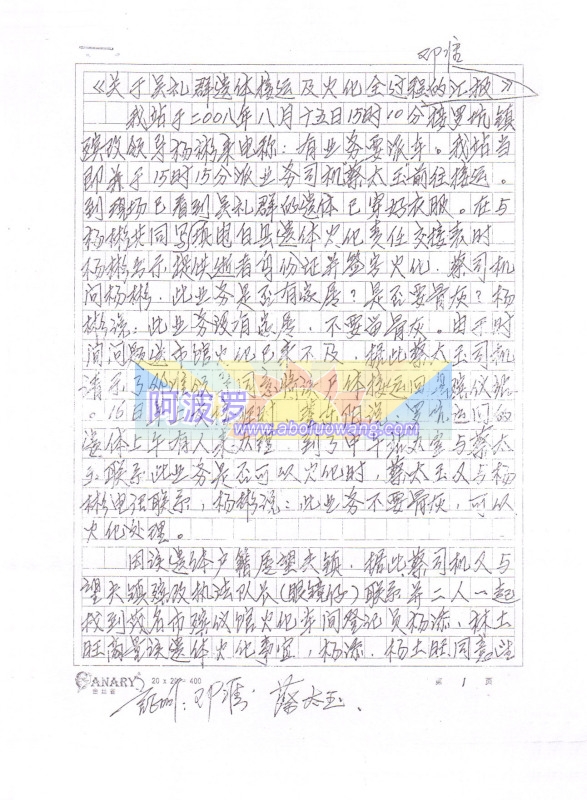 邓信
《关于吴礼群遗体接运及火化全过程的汇报》
我站于二00八年八月十五日15时10分接罗坑镇
殡改领导杨彬来电称:有业务要派车。我站当
即并于15时15分派业务司机蔡太玉前往接运。
到现场已看到吴礼群的遗体已穿好衣服。在与
杨彬共同写填电白县遗体火化责任交接表时
杨彬出示提供逝者身份证并签字火化.蔡司机
问杨彬.此业务是否有家属?是否要骨灰?杨
彬说:此业务没有家属.不要留骨灰。由于时
间问题送市馆火化已来不及.据此蔡太玉司机
请示了 同意将该尸体接运回 殡仪站
。16日早 罗坑运回的
遗体上午有人来 到了中午 与蔡太
玉联系此业务是否可以火化时,蔡太玉又与杨
彬电话联系,杨彬说:此业务不要骨灰,可以
火化处理。
因该遗体户籍属望夫镇.据此蔡司机又与
望夫镇殡改执法队员(眼镜仔)联系并二人一起
找到茂名市殡仪馆火化车间登记员杨添、林土
旺商量该遗体火化事宜,杨添、杨土旺同意此
阿波罗
www.aboluowang.com
CANARY
20 x 20 = 400
第 1 页
证明:邓清 蔡太玉.